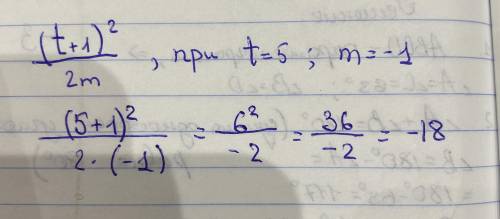 (t+1)² / 2m , при t=5 ; m=-1
(5+1)² / 2·(-1) = 6² / -2 = 36 / -2 = -18